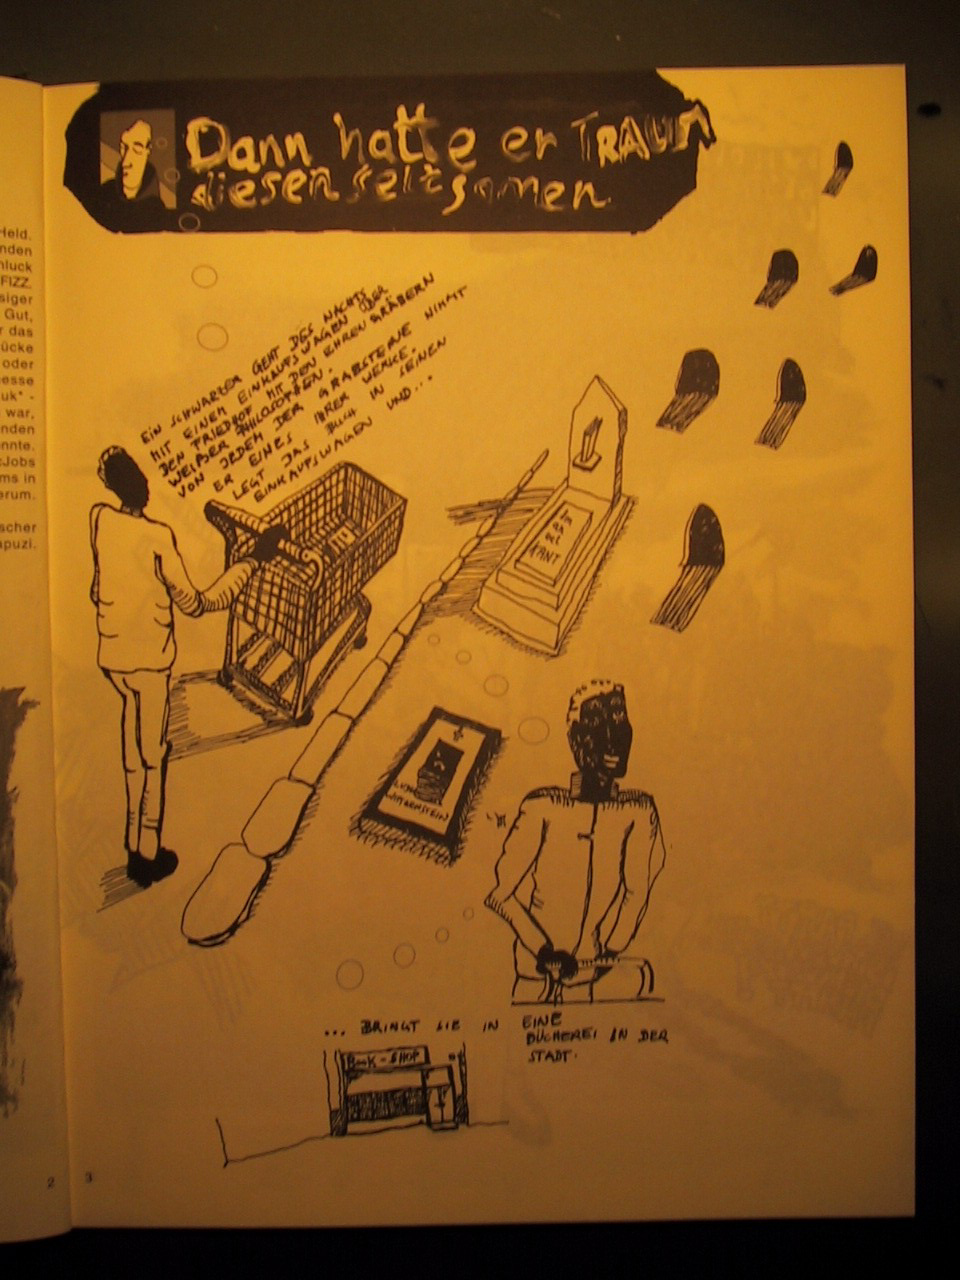 Dann hatte er TRAUM
diesen seltsamen
EIN SCHWARZER GEHT DES NACHTS
MIT EINEM EINKAUFSWAGEN ÜBER
DEN FRIEDHOF MIT DEN EHRENGRÄBERN
WEIẞER PHILOSOPHEN.
VON JEDEM DER GRABSTEINE NIMMT
ER EINES IHRER WERKE.
LEGT DAS BUCH IN SEINEN
EINKAUFSWAGEN UND...
Im
an
uel
KANT
WITTGENSTEIN
... BRINGT SIE IN EINE
BÜCHEREI IN DER
STADT.
BOOK-SHOP
Held.
nden
hluck
FIZZ.
siger
Gut,
r das
ücke
oder
esse
uk" -
war,
nden
nnte.
Jobs
ms in
erum.
scher
apuzi.
2
3